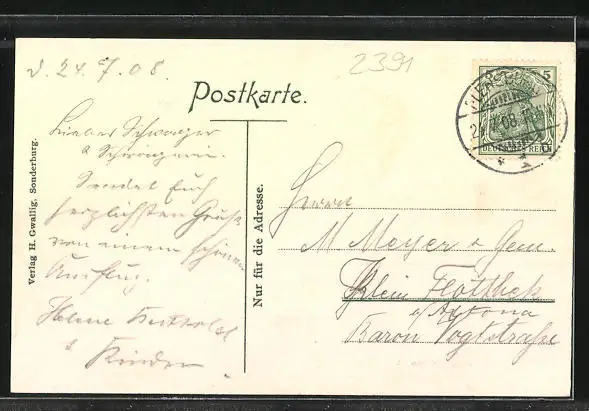 d. 24. 7. 08.
2391
Postkarte.
Lieber Schwager
& Schwägerin.
Sendet Euch
herzlichsten Gruß
von einem schönen
Ausflug.
Helene
& Kinder
Verlag H. Gwallig, Sonderburg.
Nur für die Adresse.
5
DEUTSCHES REICH
08
Herrn
M Meyer & Gem.
Klein Flottbek
b/ Altona
Baron Vogtstraße